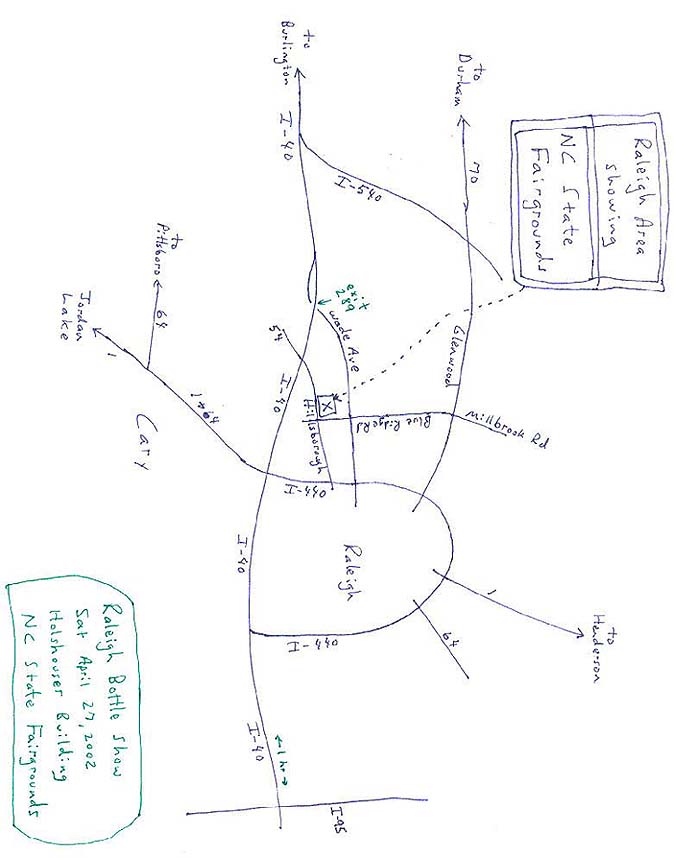 Raleigh Area
showing
NC State
Fairgrounds
to
Durham
70
Glenwood
Millbrook Rd
to
Henderson
1
64
I-540
to
Burlington
I-40
exit
289
Wade Ave
Blue Ridge Rd
X
Hillsborough
54
I-40
I-440
Raleigh
I-440
I-40
I-40
1 hr
I-95
to
Pittsboro
64
1+64
1
Jordan
Lake
Cary
Raleigh Bottle Show
Sat April 27, 2002
Holshouser Building
NC State Fairgrounds